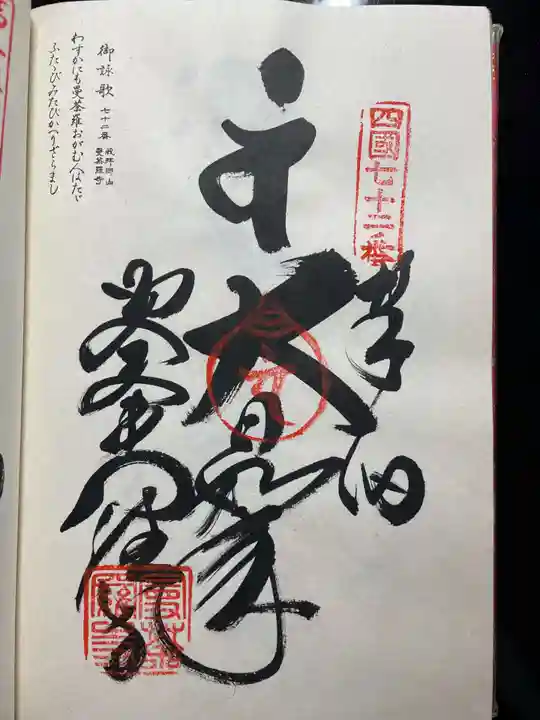 四國七十二番
奉納
大日如来
曼荼羅寺
御詠歌 七十二番 我拝師山 曼荼羅寺
わずかにも曼荼羅おがむ人はたゞ
ふたゝびみたびかへりざらまし